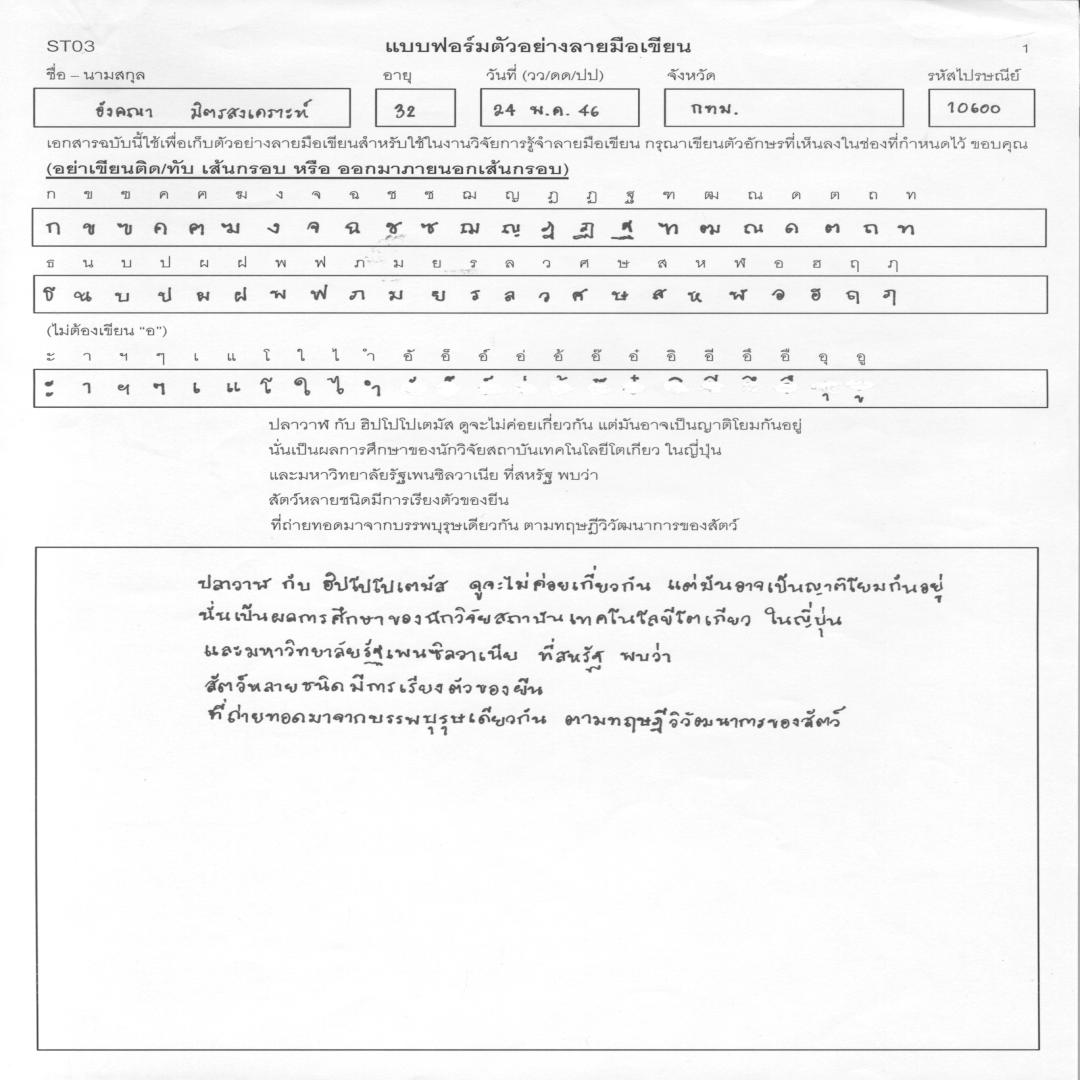 ST03 แบบฟอร์มตัวอย่างลายมือเขียน 1
ชื่อ – นามสกุล อายุ วันที่ (วว/ดด/ปป) จังหวัด รหัสไปรษณีย์
อังคณา มิตรสงเคราะห์ 32 24 พ.ค. 46 กทม. 10600
เอกสารฉบับนี้ใช้เพื่อเก็บตัวอย่างลายมือเขียนสำหรับใช้ในงานวิจัยการรู้จำลายมือเขียน กรุณาเขียนตัวอักษรที่เห็นลงในช่องที่กำหนดไว้ ขอบคุณ
(อย่าเขียนติด/ทับ เส้นกรอบ หรือ ออกมาภายนอกเส้นกรอบ)
ก ข ฃ ค ฅ ฆ ง จ ฉ ช ซ ฌ ญ ฎ ฏ ฐ ฑ ฒ ณ ด ต ถ ท
ก ข ฃ ค ฅ ฆ ง จ ฉ ช ซ ฌ ญ ฎ ฏ ฐ ฑ ฒ ณ ด ต ถ ท
ธ น บ ป ผ ฝ พ ฟ ภ ม ย ร ล ว ศ ษ ส ห ฬ อ ฮ ฤ ฦ
ธ น บ ป ผ ฝ พ ฟ ภ ม ย ร ล ว ศ ษ ส ห ฬ อ ฮ ฤ ฦ
(ไม่ต้องเขียน "อ")
ะ า ฯ ๆ เ แ โ ใ ไ ำ อั อ็ อ์ อ่ อ้ อ๊ อ๋ อิ อี อึ อื อุ อู
ะ า ฯ ๆ เ แ โ ใ ไ ำ ั ็ ์ ่ ้ ๊ ๋ ิ ี ึ ื ุ ู
ปลาวาฬ กับ ฮิปโปโปเตมัส ดูจะไม่ค่อยเกี่ยวกัน แต่มันอาจเป็นญาติโยมกันอยู่
นั่นเป็นผลการศึกษาของนักวิจัยสถาบันเทคโนโลยีโตเกียว ในญี่ปุ่น
และมหาวิทยาลัยรัฐเพนซิลวาเนีย ที่สหรัฐ พบว่า
สัตว์หลายชนิดมีการเรียงตัวของยีน
ที่ถ่ายทอดมาจากบรรพบุรุษเดียวกัน ตามทฤษฎีวิวัฒนาการของสัตว์
ปลาวาฬ กับ ฮิปโปโปเตมัส ดูจะไม่ค่อยเกี่ยวกัน แต่มันอาจเป็นญาติโยมกันอยู่
นั่นเป็นผลการศึกษาของนักวิจัยสถาบันเทคโนโลยีโตเกียว ในญี่ปุ่น
และมหาวิทยาลัยรัฐเพนซิลวาเนีย ที่สหรัฐ พบว่า
สัตว์หลายชนิดมีการเรียงตัวของยีน
ที่ถ่ายทอดมาจากบรรพบุรุษเดียวกัน ตามทฤษฎีวิวัฒนาการของสัตว์